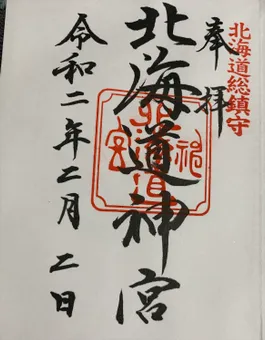 北海道総鎮守
奉拝
北海道神宮
令和二年二月二日